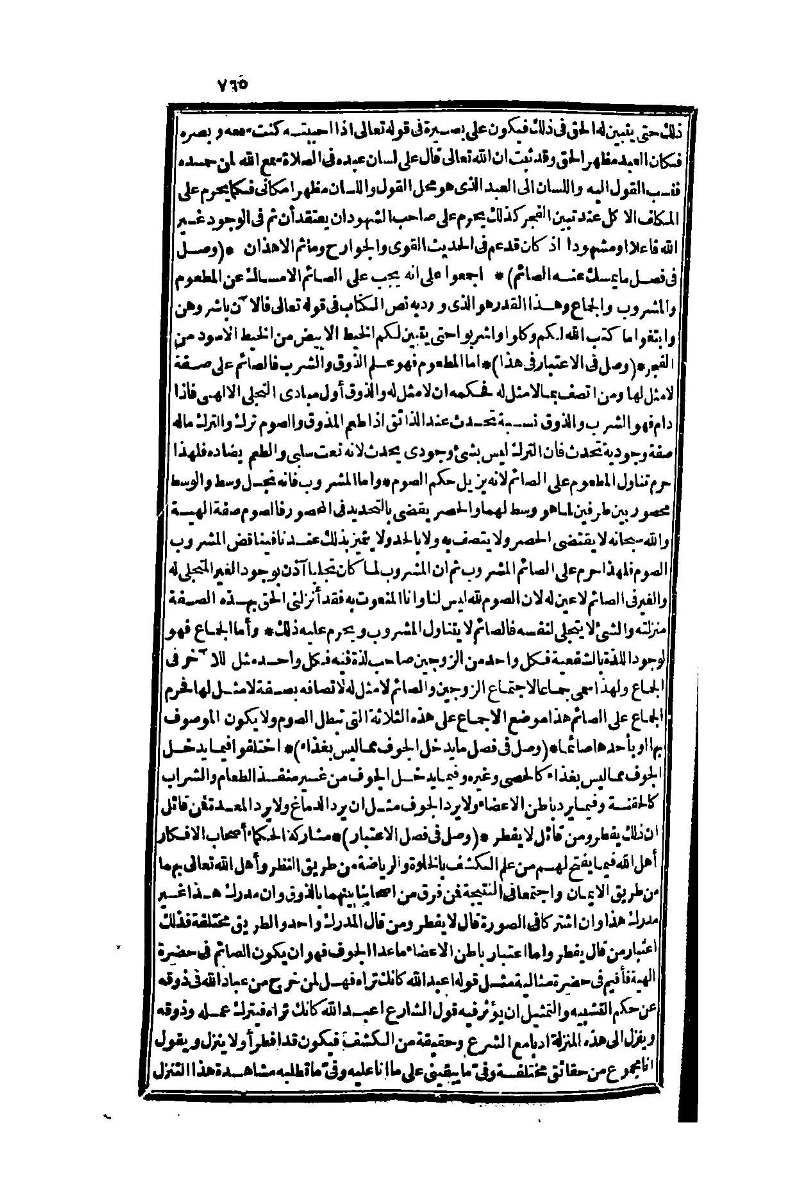 ٧٦٥
ذلك حتى يتبين له الحق فى ذلك فيكون على بصيرة فى قوله تعالى اذا احببته كنت سمعه وبصره
فكان العبد مظهر الحق وقد ثبت ان الله تعالى قال على لسان عبده فى الصلاة سمع الله لمن حمده
فنسب القول اليه واللسان الى العبد الذى هو محل القول واللسان مظهر امكانى فكما يحرم على
المكلف الاكل عند تبين الفجر كذلك يحرم على صاحب الشهود ان يعتقد أن ثم فى الوجود غير
الله فاعلا او مشهودا اذ كان قد عم فى الحديث القوى والجوارح وما ثم الا هذان * (وصل
فى فصل ما يمسك عنه الصائم) * اجمعوا على انه يجب على الصائم الامساك عن المطعوم
والمشروب والجماع وهذا القدر هو الذى ورد به نص الكتاب فى قوله تعالى فالآن باشروهن
وابتغوا ما كتب الله لكم وكلوا واشربوا حتى يتبين لكم الخيط الابيض من الخيط الاسود من
الفجر * (وصل فى الاعتبار فى هذا) * اما المطعوم فهو علم الذوق والشرب فالصائم على صفة
لا مثل لها ومن اتصف بما لا مثل له فحكمه ان لا مثل له والذوق أول مبادى التجلى الالهى فاذا
دام فهو الشرب والذوق نسبة تحدث عند الذائق اذا طعم المذوق والصوم ترك والترك ماله
صفة وجودية تحدث فان الترك ليس بشئ وجودى يحدث لانه نعت سلبى والطعم يضاده فلهذا
حرم تناول المطعوم على الصائم لانه يزيل حكم الصوم * واما المشروب فانه تجل وسط والوسط
محصور بين طرفين لما هو وسط لهما والحصر يقضى بالتحديد فى المحصور فالصوم صفة الهية
والله سبحانه لا يقتضى الحصر ولا يتصف به ولا بالحد ولا يتميز بذلك عندنا فيناقض المشروب
الصوم فلهذا حرم على الصائم المشروب ثم ان المشروب لما كان تجليا آذن بوجود الغير المتجلى له
والغير فى الصائم لا عين له لان الصوم لله ليس لنا وانا المنعوت به فقد أنزلنى الحق بهذه الصفة
منزلته والشئ لا يتجلى لنفسه فالصائم لا يتناول المشروب ويحرم عليه ذلك * وأما الجماع فهو
لوجود اللذة بالشفعية فكل واحد من الزوجين صاحب لذة فيه فكل واحد مثل للآخر فى
الجماع ولهذا سمى جماعا لاجتماع الزوجين والصائم لا مثل له لاتصافه بصفة لا مثل لها فحرم
الجماع على الصائم هذا موضع الاجماع على هذه الثلاثة التى تبطل الصوم ولا يكون الموصوف
بها او بأحدها صائما * (وصل فى فصل ما يدخل الجوف مما ليس بغذاء) * اختلفوا فيما يدخل
الجوف مما ليس بغذاء كالحصى وغيره وفيما يدخل الجوف من غير منفذ الطعام والشراب
كالحقنة وفيما يرد باطن الاعضاء ولا يرد الجوف مثل ان يرد الدماغ ولا يرد المعدة فمن قائل
ان ذلك يفطر ومن قائل لا يفطر * (وصل فى فصل الاعتبار) * مشاركة الحكماء أصحاب الافكار
أهل الله فيما يفتح لهم من علم الكشف بالخلوة والرياضة من طريق النظر وأهل الله تعالى بهما
من طريق الايمان واجتمعا فى النتيجة فمن فرق من اصحابنا بينهما بالذوق وان مدرك هذا غير
مدرك هذا وان اشتركا فى الصورة قال لا يفطر ومن قال المدرك واحد والطريق مختلفة فذلك
اعتبار من قال يفطر واما اعتبار باطن الاعضاء ما عدا الجوف فهو ان يكون الصائم فى حضرة
الهية فأقيم فى حضرة مثالية مثل قوله اعبد الله كانك تراه فهل لمن خرج من عباد الله فى ذوقه
عن حكم التشبيه والتمثيل ان يؤثر فيه قول الشارع اعبد الله كانك تراه فيترك عمله وذوقه
وينزل الى هذه المنزلة ادبا مع الشرع وحقيقة من الكشف فيكون قد افطر أو لا ينزل ويقول
انا مجموع من حقائق مختلفة وفىّ ما يبقينى على ما انا عليه وفىّ ما تطلبه مشاهدة هذا التنزل